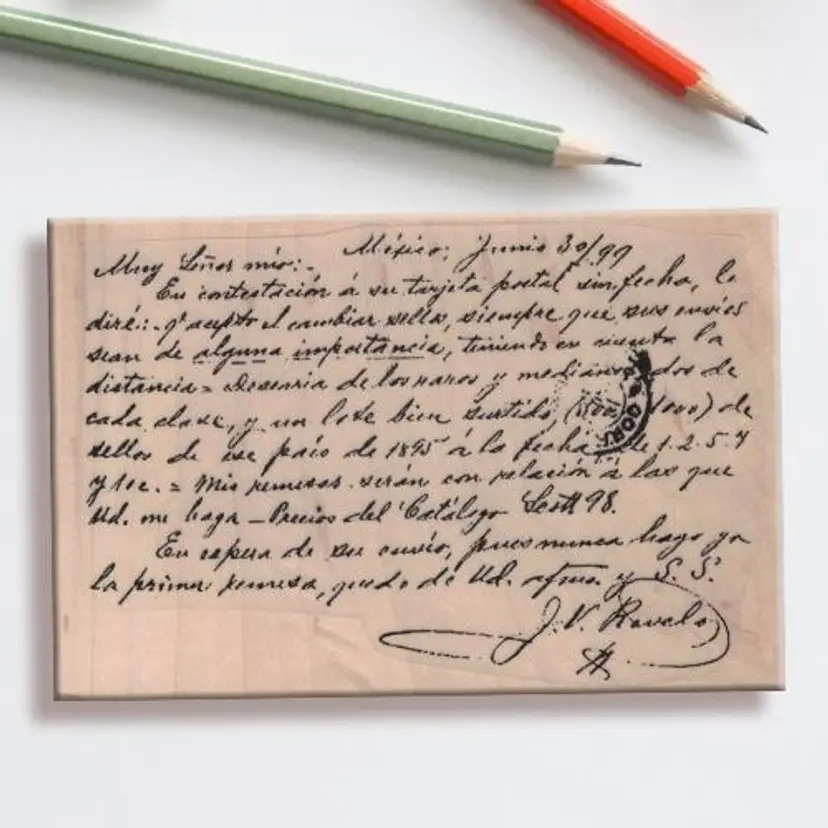 México, Junio 30/99
Muy Señor mio:-,
En contestación á su tarjeta postal sin fecha, le
diré:- q' acepto el cambiar sellos, siempre que sus envios
sean de alguna importancia, teniendo en cuenta la
distancia = Desearia de los raros y medianos dos de
cada clase, y un lote bien surtido (500 1000) de
sellos de ese país de 1895 á la fecha de 1. 2. 5. y
y 10 c. = Mis remesas serán con relación á las que
Ud. me haga - Precios del Catálogo Scott 98.
En espera de su envio, pues nunca hago yo
la primer remesa, quedo de Ud. afmo. y S. S.
J. V. Ravelo